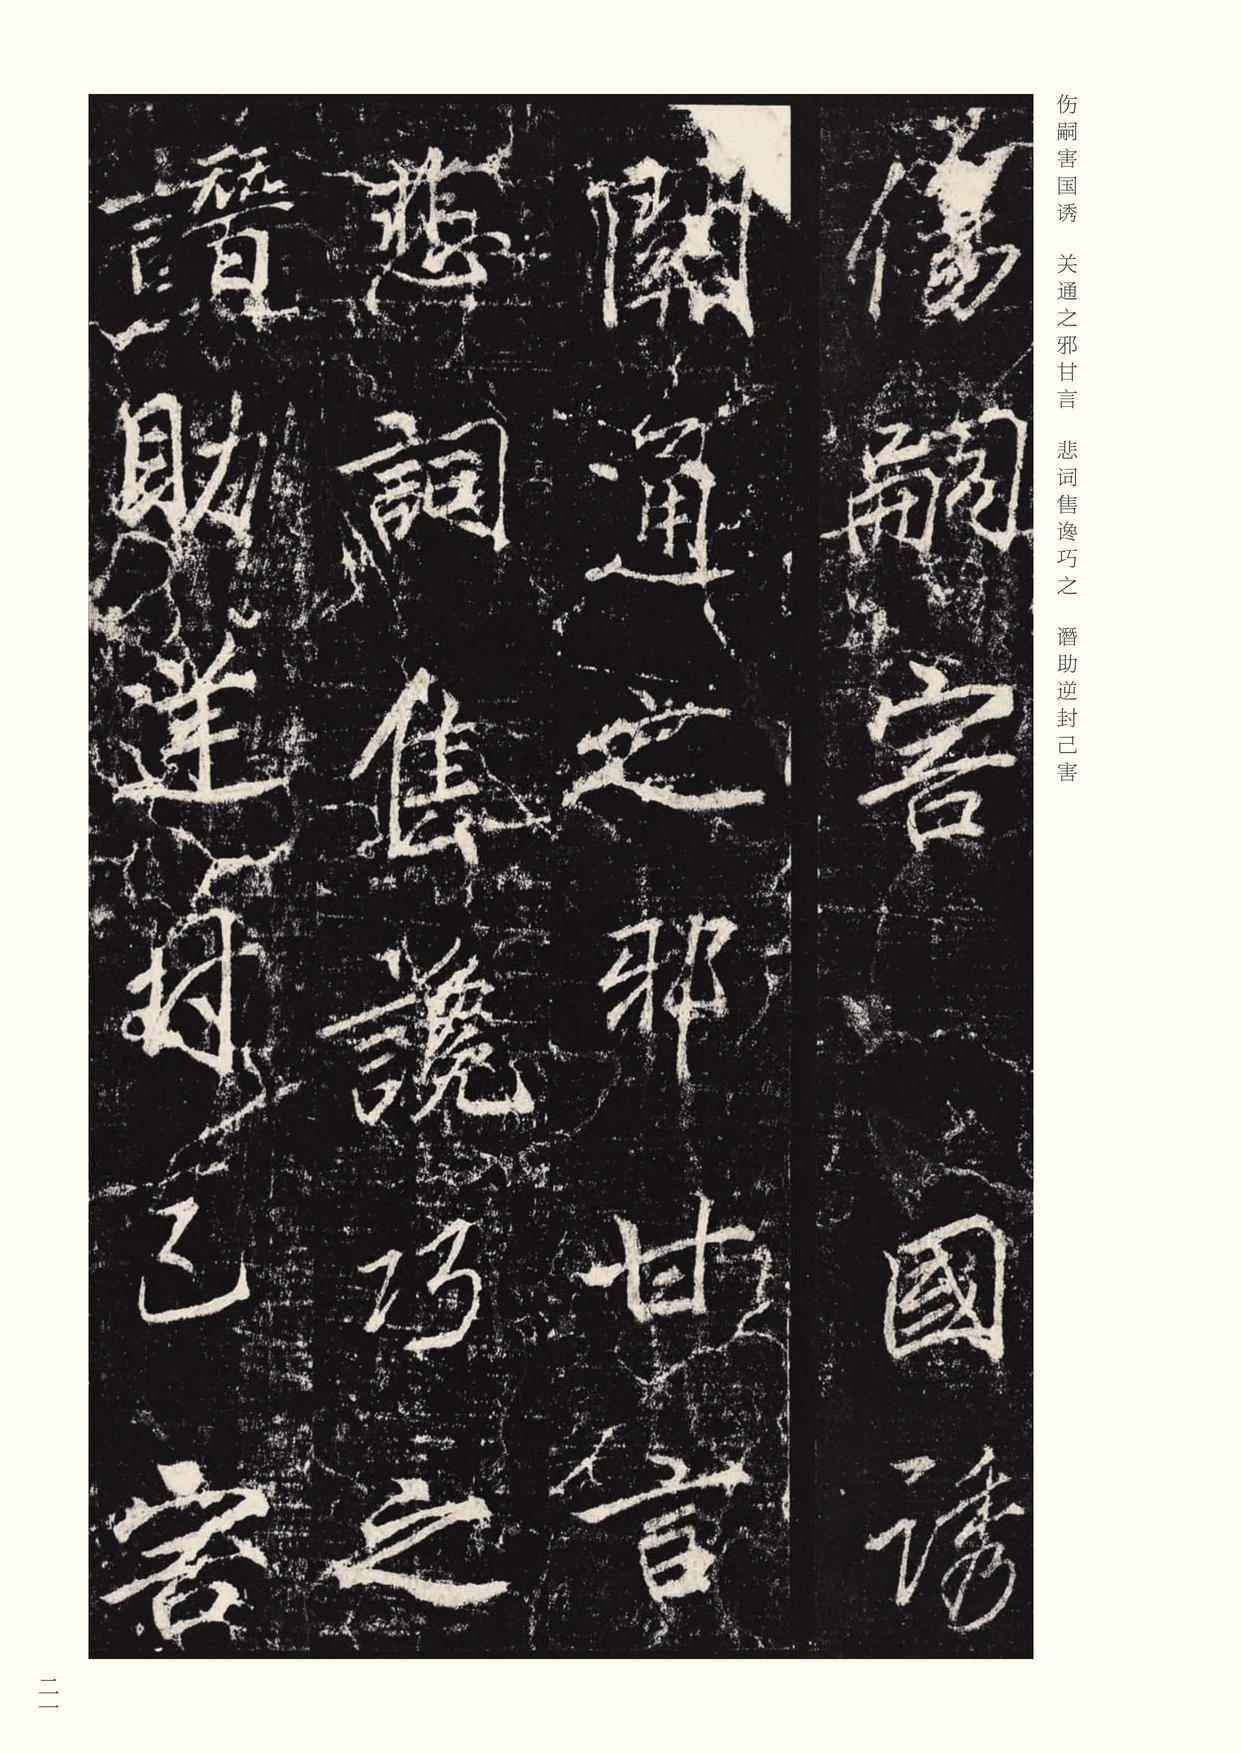 伤嗣害国诱　关通之邪甘言　悲词售谗巧之　谮助逆封己害
傷嗣害國誘
關通之邪甘言
悲詞售讒巧之
譖助逆封己害
二一